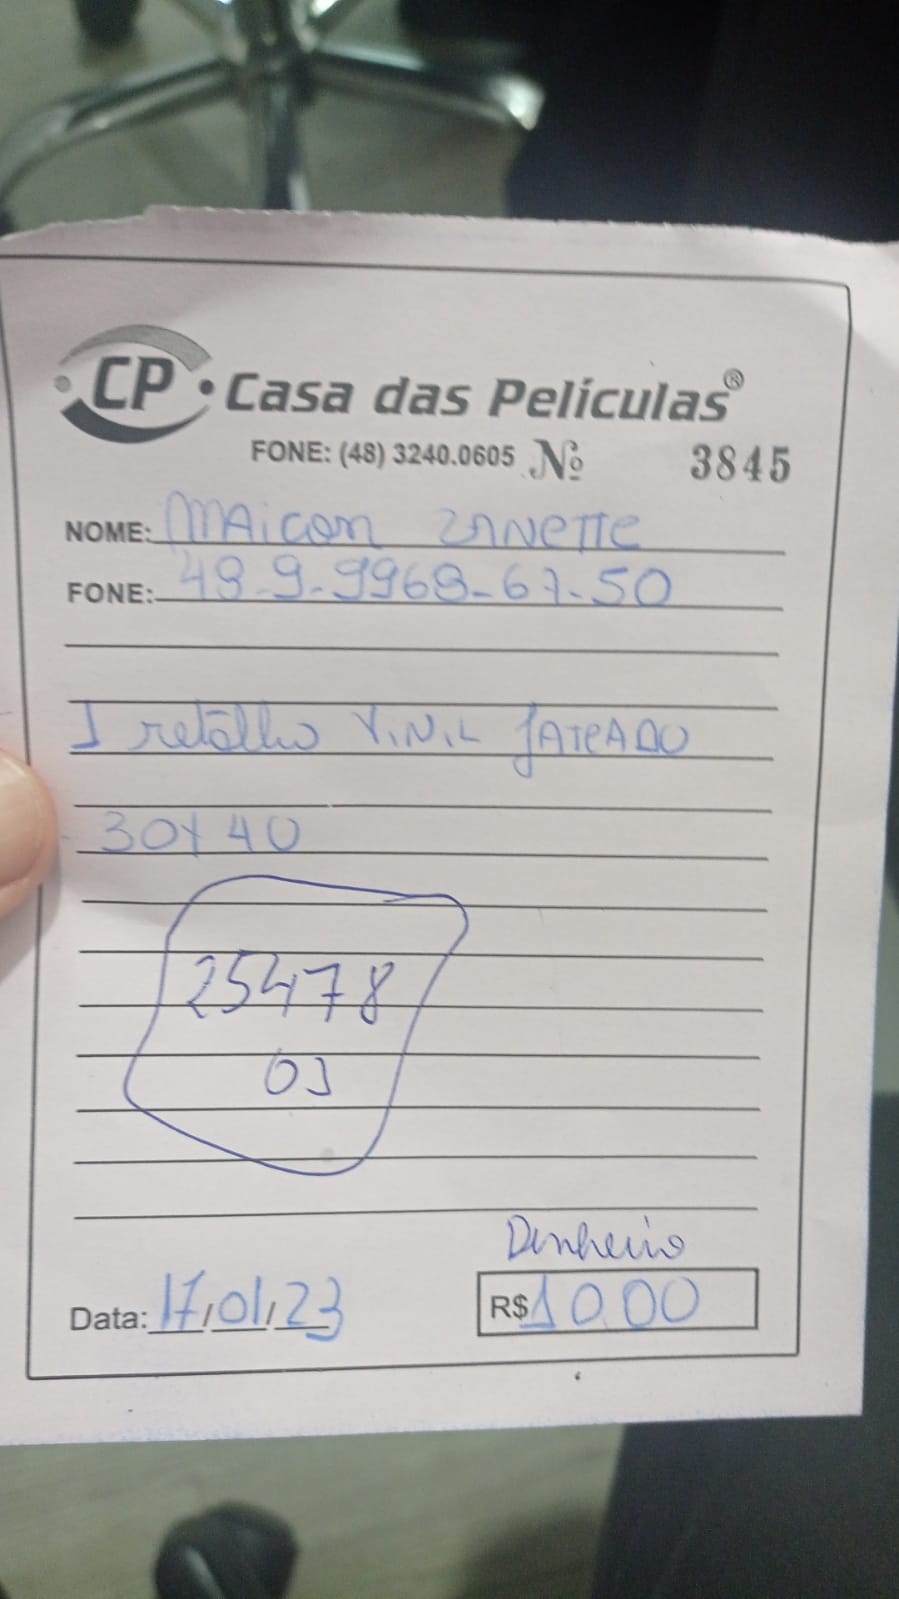 CP Casa das Películas®
FONE: (48) 3240.0605 Nº 3845
NOME: MAicon ZANETTE
FONE: 48-9-9968-67-50
1 retalho ViNiL JATEADO
30X40
25478
03
Dinheiro
Data: 17/01/23 R$ 10.00